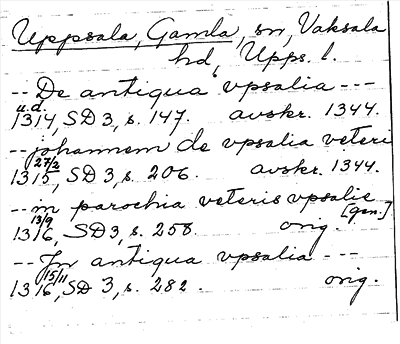 Uppsala, Gamla, sn, Vaksala
hd, Upps. l.
-- De antiqua vpsalia ---
u.d.
1314, SD 3, s. 147. avskr. 1344.
-- johannem de vpsalia veteri
27/2
1315, SD 3, s. 206. avskr. 1344.
-- in parochia veteris vpsalie
13/9 [gen.]
1316, SD 3, s. 258. orig.
-- In antiqua vpsalia ---
15/11
1316, SD 3, s. 282. orig.